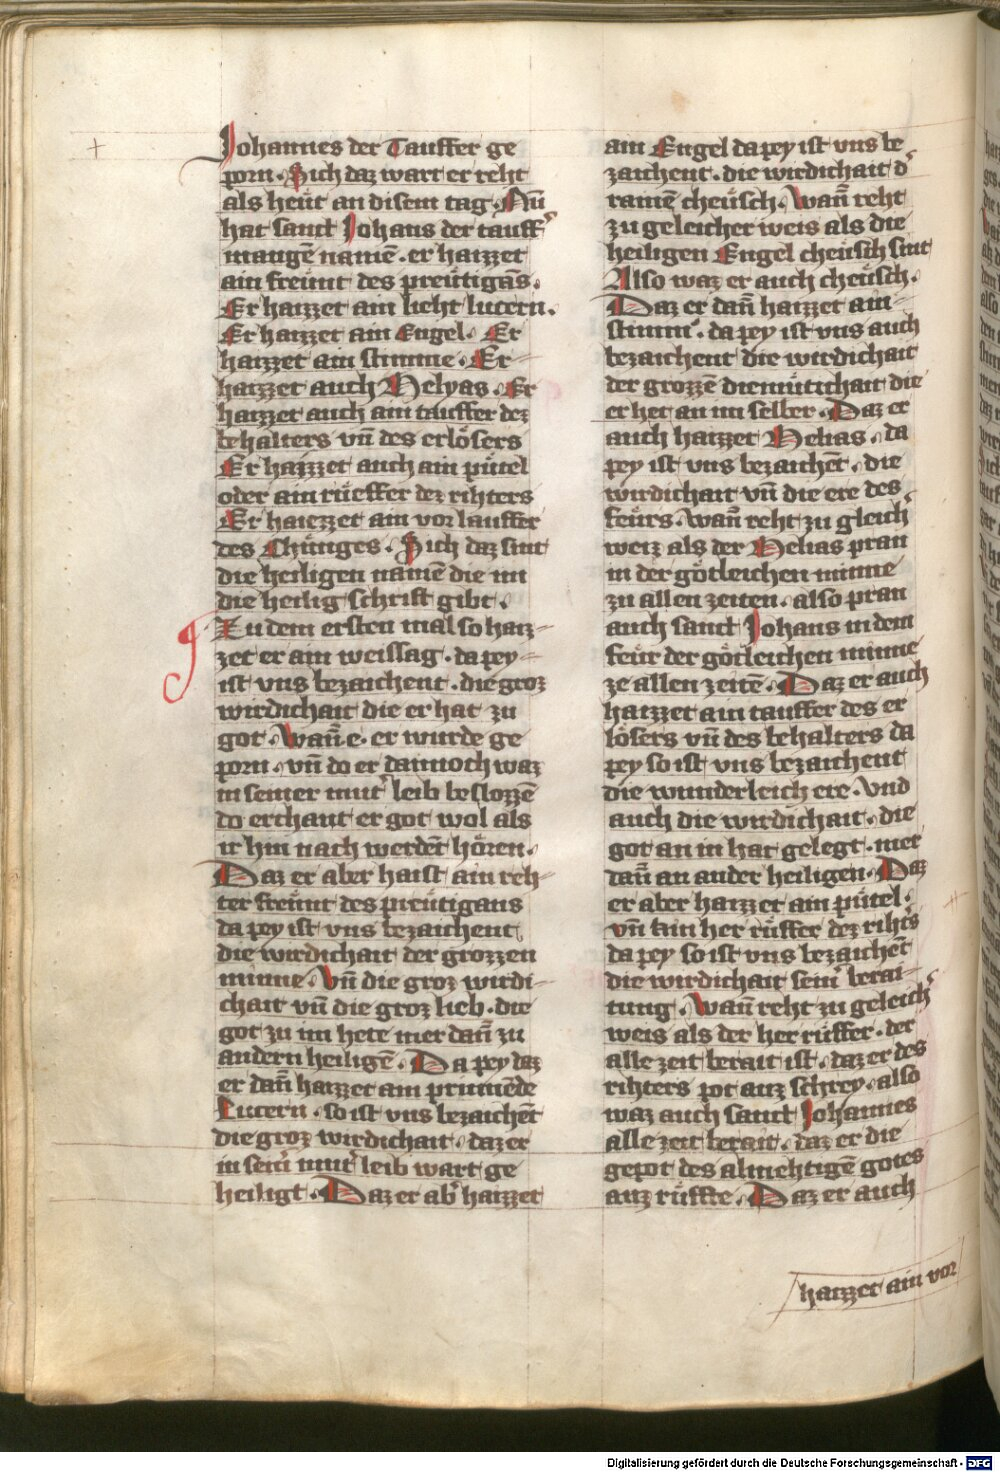 Johannes der Tauffer ge
porn. Sich daz wart er reht
als heüt an disem tag. Nū
hat sanct Johans der tauffʼ
mangē namē. er haizzet
ain freünt des preütigās.
Er haizzet ain lieht lucern.
Er haizzet ain Engel. Er
haizzet ain stimme. Er
haizzet auch Helyas. Er
haizzet auch ain tauffer dez
behalters vñ des erlösers
Er haizzet auch ain pütel
oder ain rüeffer dez rihters
Er haiezzet ain vorlauffer
des Chünges. Sich daz sint
die heiligen namē die im
die heilig schrift gibt.
Zu dem ersten mal so haiz-
zet er ain weissag. da pey
ist vns bezaichent. die groz
wirdichait die er hat zu
got. Wañ e. er wurde ge
porn. vñ do er dannoch waz
in seiner mutʼ leib beslozzē
do erchant er got wol als
ir hin nach werdēt hören.
Daz er aber haist ain reh-
ter freünt des preütigans
da pey ist vns bezaichent
die wirdichait der grozzen
minne. Vñ die groz wirdi-
chait vñ die groz lieb. die
got zu im hete mer dañ zu
andern heiligē. Da pey daz
er dañ haizzet ain prinnēde
Lucern. so ist vns bezaichēt
die groz wirdichait. daz er
in seinʼ mutʼ leib wart ge
heiligt. Daz er abʼ haizzet
ain Engel da pey ist vns be
zaichent. die wirdichait dʼ
rainē cheüsch. Wañ reht
zu geleicher weis als die
heiligen Engel cheüsch sint
Also waz er auch cheüsch.
Daz er dañ haizzet ain
stimmʼ. da pey ist vns auch
bezaichent die wirdichait
der grozzē diemütichait die
er het an im selber. Daz er
auch haizzet Helias. da
pey ist vns bezaichēt. die
wirdichait vñ die ere des
feürs. wañ reht zu gleichʼ
weiz als der Helias pran
in der götleichen minne
zu allen zeiten. also pran
auch sanct Johans in dem
feür der götleichen minne
ze allen zeitē. Daz er auch
haizzet ain tauffer des er
lösers vñ des behalters da
pey so ist vns bezaichent
die wunderleich ere. Vnd
auch die wirdichait. die
got an in hat gelegt. mer
dañ an ander heiligen. Daz
er aber haizzet ain pütel.
vñ ain her rüffer dez rihtʼs
da pey so ist vns bezaichēt
die wirdichait seinʼ berai-
tung. Wañ reht zu geleichʼ
weis als der her rüffer. der
alle zeit berait ist. daz er des
rihters pot auz schrey. also
waz auch sanct Johannes
alle zeit berait. daz er die
gepot des almehtigē gotes
auz rüffte. Daz er auch
haizzet ain vor
Digitalisierung gefördert durch die Deutsche Forschungsgemeinschaft - DFG